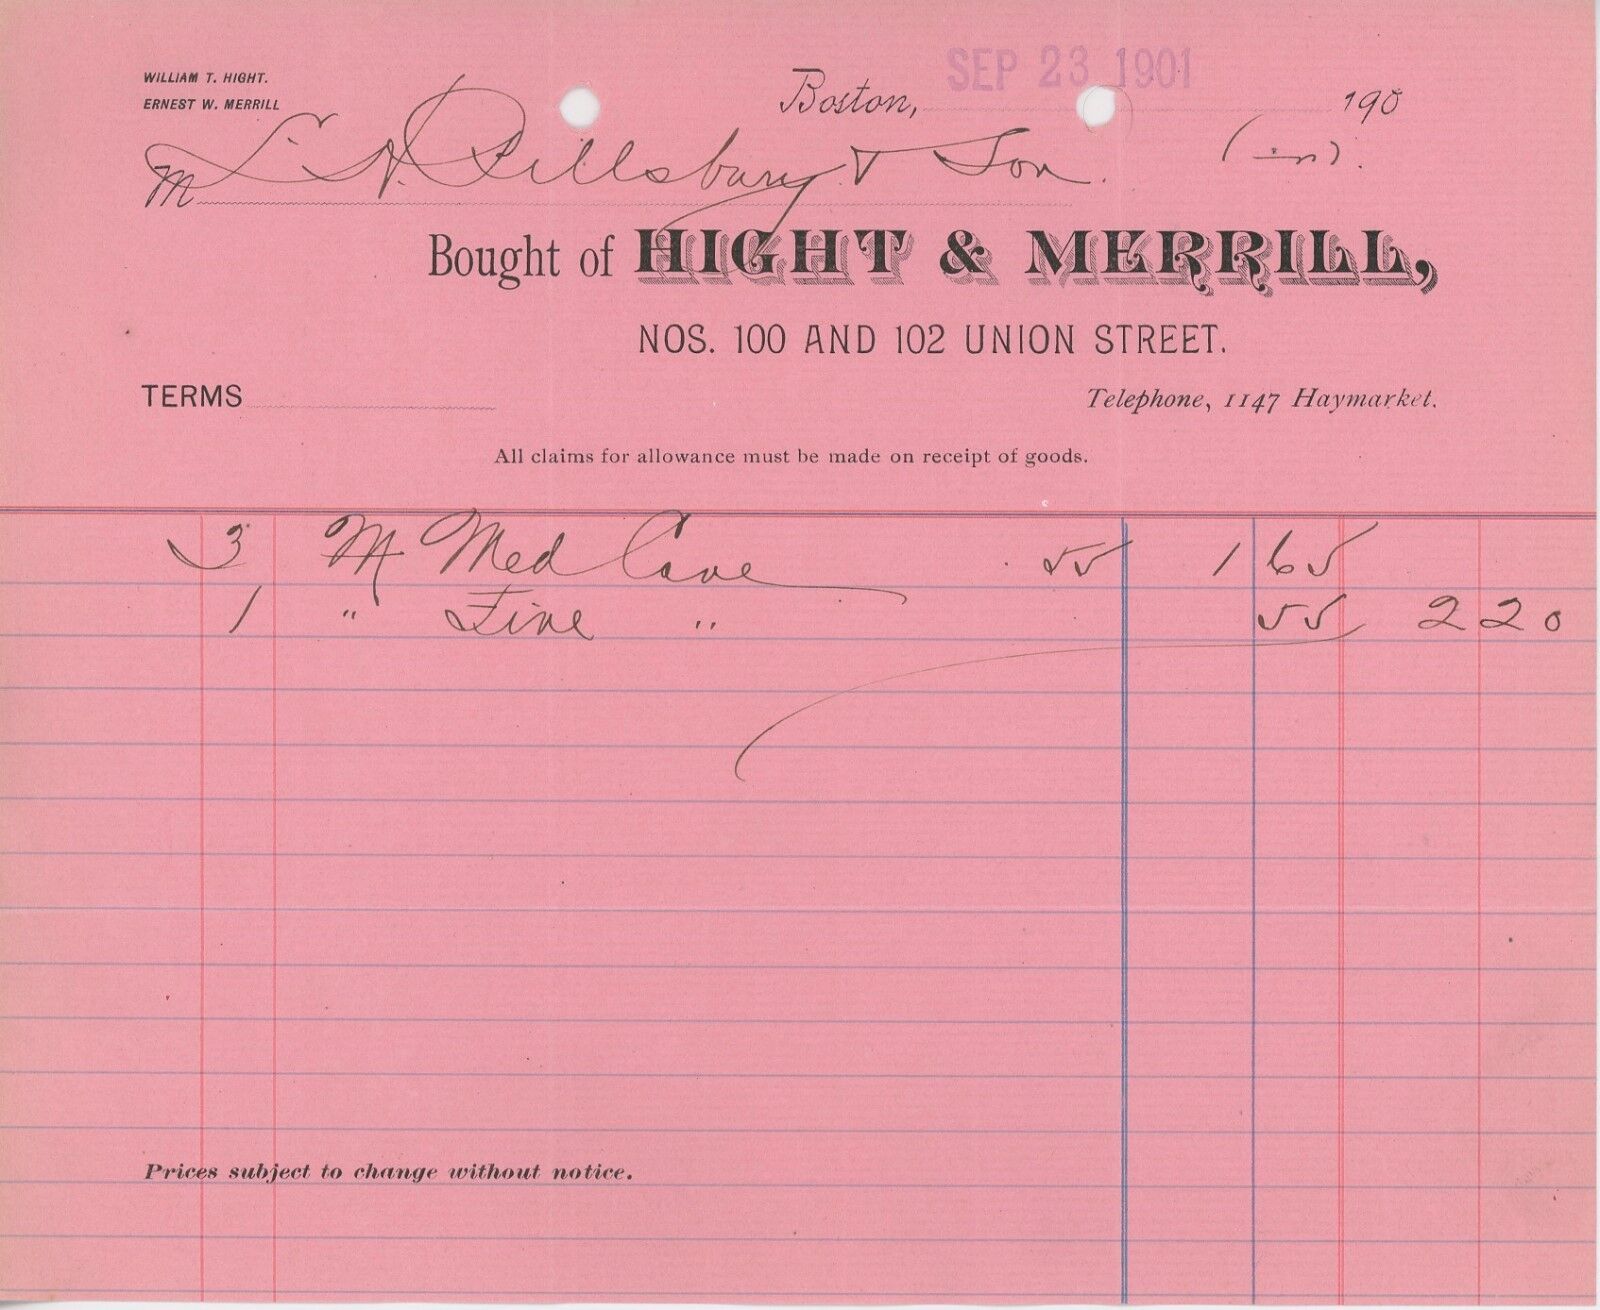 WILLIAM T. HIGHT.
ERNEST W. MERRILL
Boston, SEP 23 1901 190
M Pillsbury & Son.
Bought of HIGHT & MERRILL,
NOS. 100 AND 102 UNION STREET.
TERMS
Telephone, 1147 Haymarket.
All claims for allowance must be made on receipt of goods.
3 M Med Cane 55 1 65
1 " Fine " 55 2 20
Prices subject to change without notice.